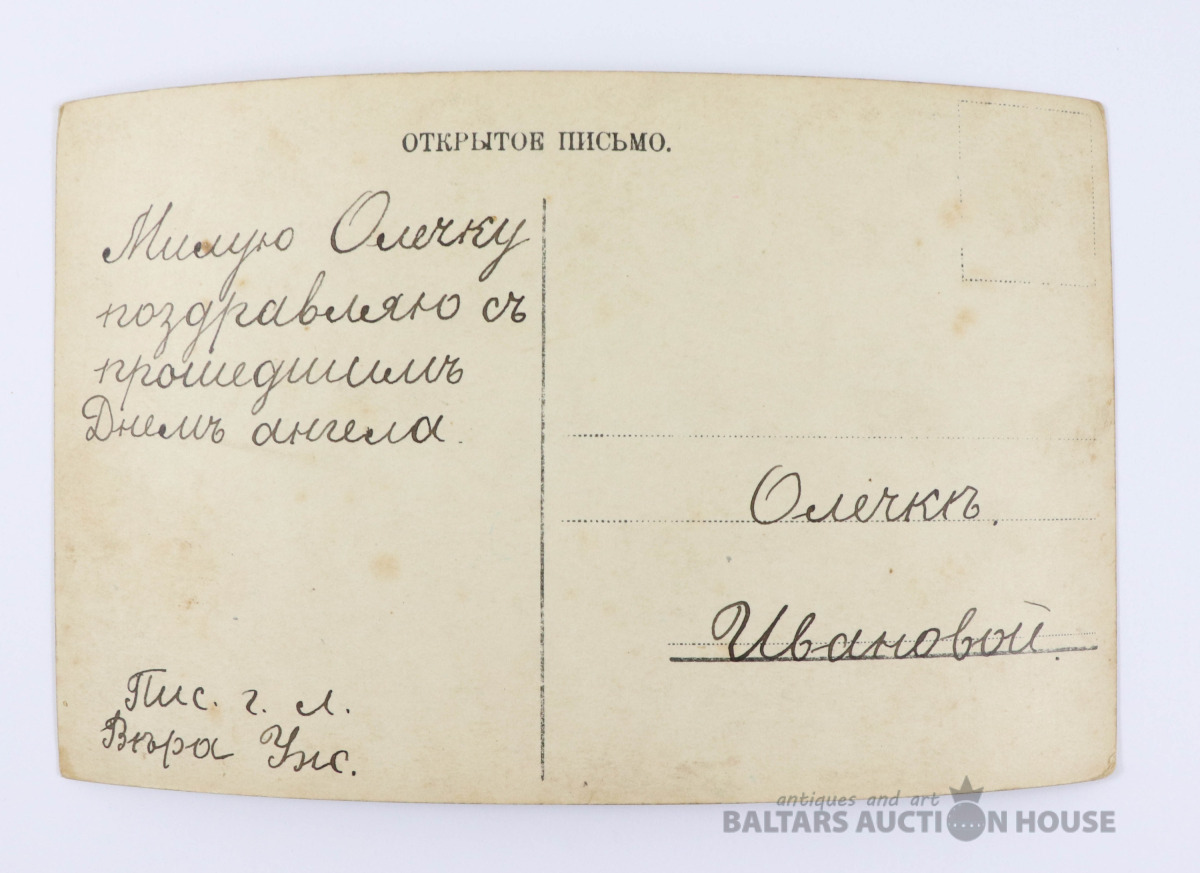 ОТКРЫТОЕ ПИСЬМО.
Милую Олечку
поздравляю съ
прошедшимъ
Днемъ ангела.
Пис. г. л.
Вѣра Унс.
Олечкѣ.
Ивановой.
antiques and art
BALTARS AUCTION HOUSE